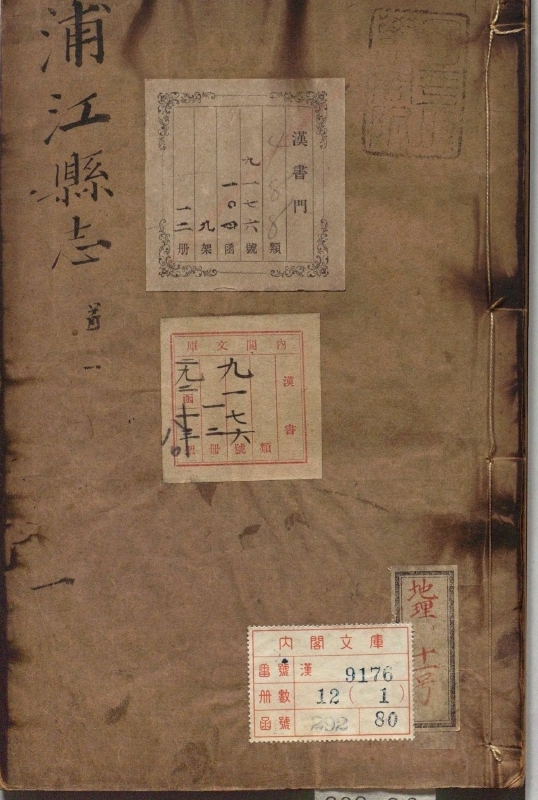 浦江縣志
首一
漢書門
類
九一七六號
一〇四函
九架
一二册
內閣文庫
漢書
類
九一七六號
一二冊
一
地理
十一号
內閣文庫
番號 漢 9176
册數 12 ( 1 )
函號 292 80